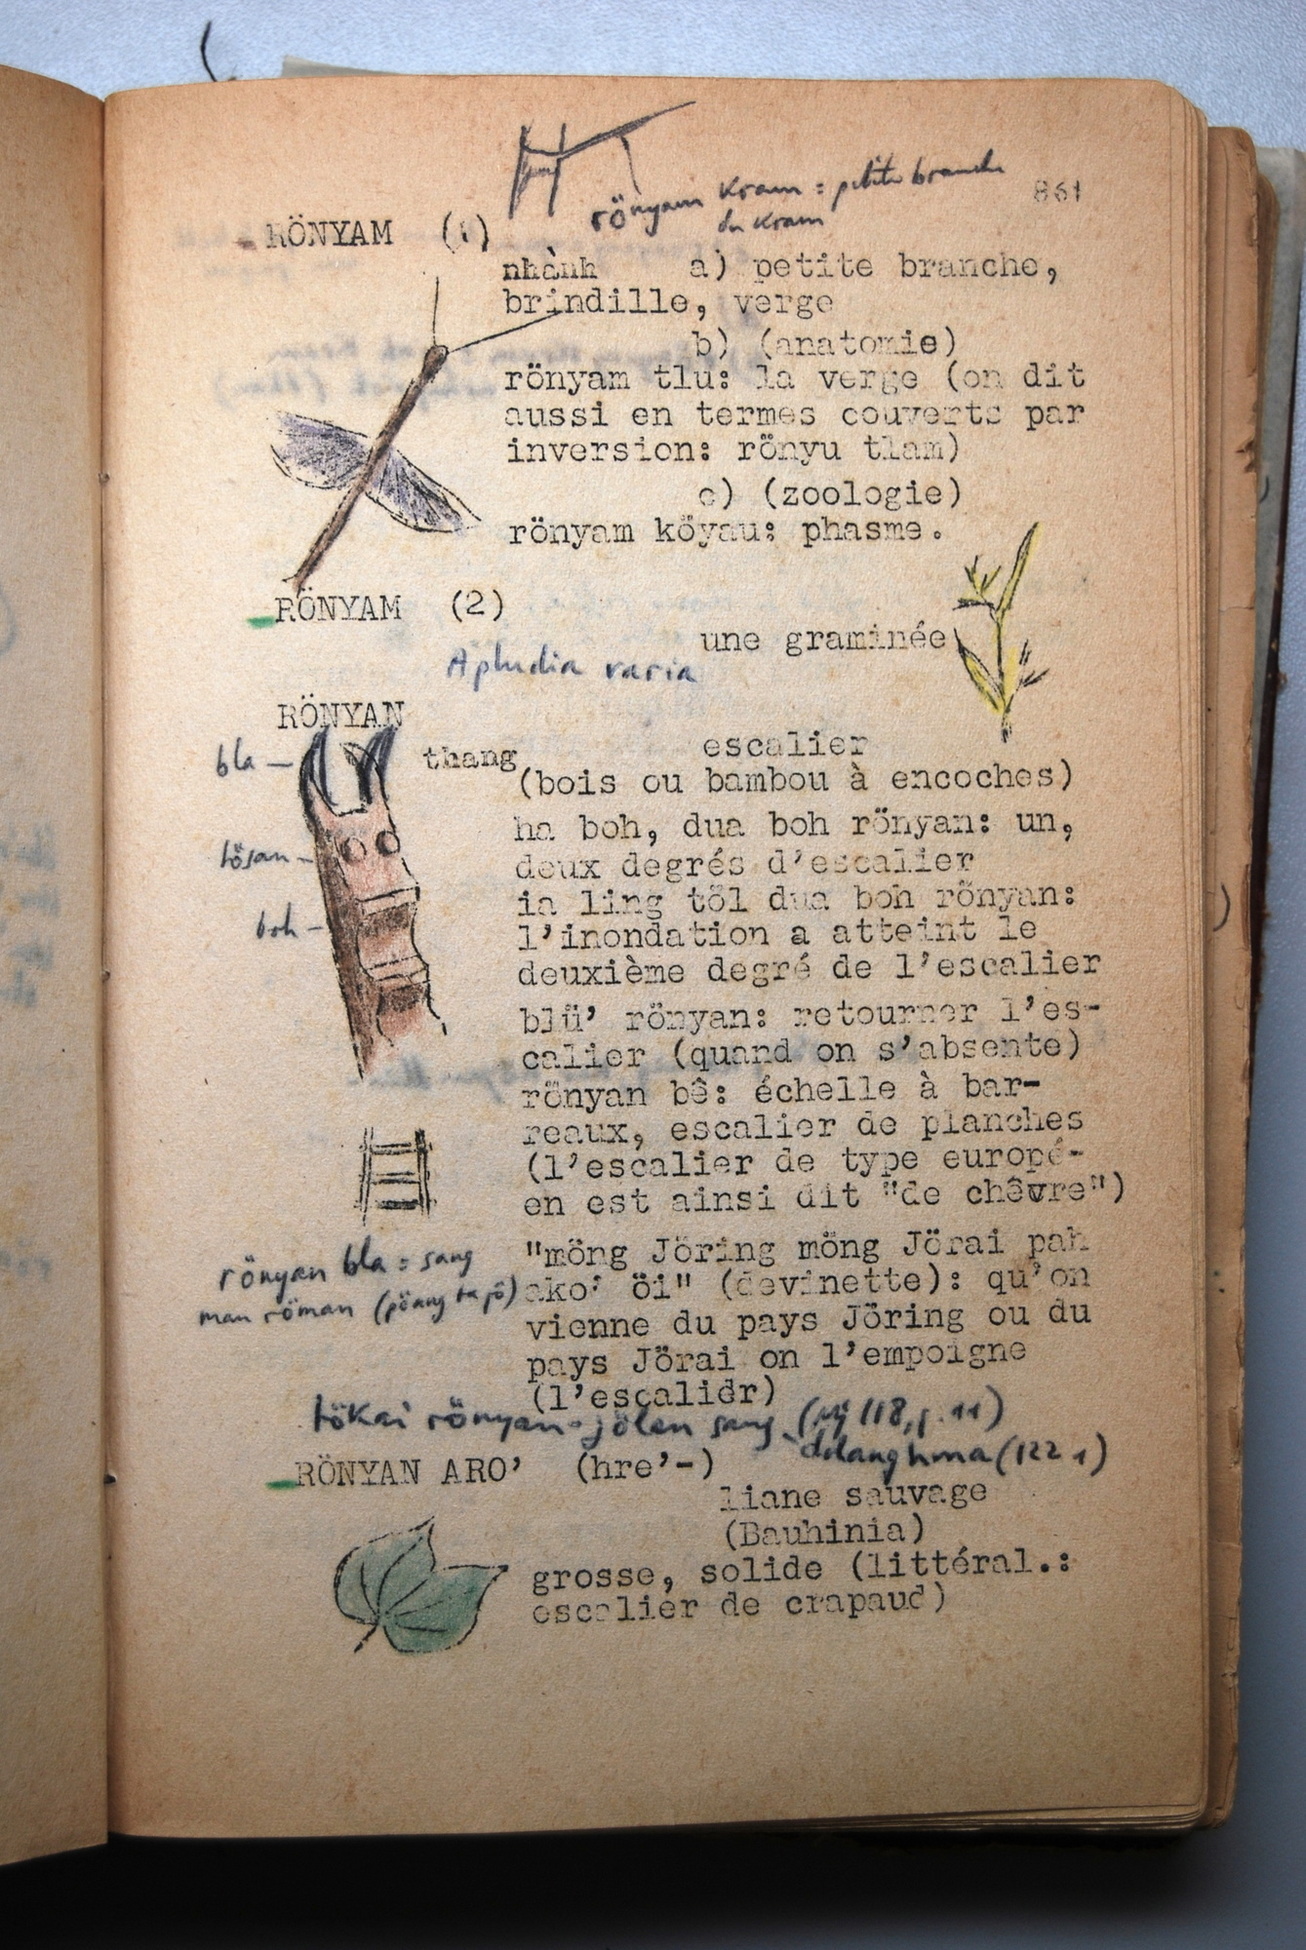 861
rönyam Kram = petite branche
du Kram
RÖNYAM (1)
nhành a) petite branche,
brindille, verge
b) (anatomie)
rönyam tlu: la verge (on dit
aussi en termes couverts par
inversion: rönyu tlam)
c) (zoologie)
rönyam köyau: phasme.
RÖNYAM (2)
une graminée
Apludia varia
RÖNYAN
bla
thang
escalier
(bois ou bambou à encoches)
ha boh, dua boh rönyan: un,
tösan
deux degrés d'escalier
ia ling töl dua boh rönyan:
boh
l'inondation a atteint le
deuxième degré de l'escalier
blü' rönyan: retourner l'es-
calier (quand on s'absente)
rönyan bê: échelle à bar-
reaux, escalier de planches
(l'escalier de type europé-
en est ainsi dit "de chêvre")
rönyan bla = sang
man röman (pöang ta jö)
"möng Jöring möng Jörai pah
ako' öi" (devinette): qu'on
vienne du pays Jöring ou du
pays Jörai on l'empoigne
(l'escalier)
tökai rönyan = jölen sang (118, p. 11)
hma (122 1)
RÖNYAN ARO' (hre'-)
liane sauvage
(Bauhinia)
grosse, solide (littéral.:
escalier de crapaud)